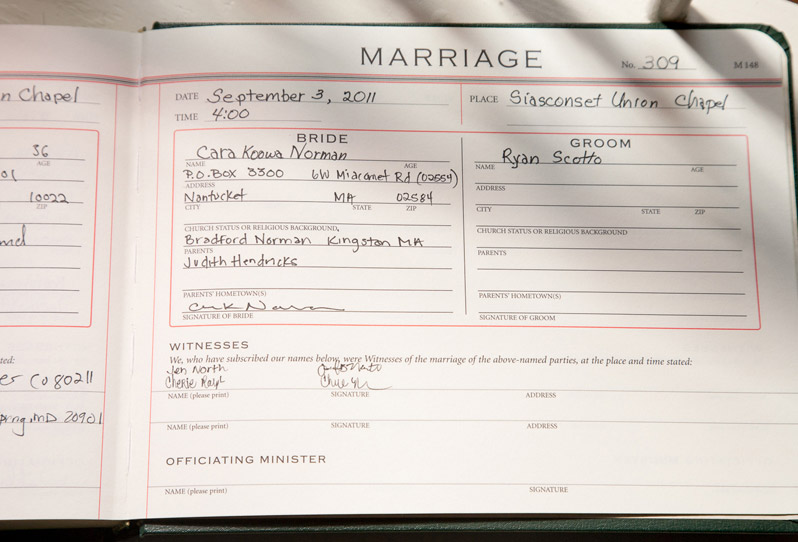 MARRIAGE
No. 309 M 148
DATE September 3, 2011 PLACE Siasconset Union Chapel
TIME 4:00
n Chapel
36
AGE
10022
ZIP
ted:
er Co 80211
MD 20901
BRIDE
Cara Koowa Norman
NAME AGE
P.O. Box 3300 6W Miacomet Rd (02554)
ADDRESS
Nantucket MA 02584
CITY STATE ZIP
CHURCH STATUS OR RELIGIOUS BACKGROUND
Bradford Norman Kingston MA
PARENTS
Judith Hendricks
PARENTS' HOMETOWN(S)
SIGNATURE OF BRIDE
GROOM
Ryan Scotto
NAME AGE
ADDRESS
CITY STATE ZIP
CHURCH STATUS OR RELIGIOUS BACKGROUND
PARENTS
PARENTS' HOMETOWN(S)
SIGNATURE OF GROOM
WITNESSES
We, who have subscribed our names below, were Witnesses of the marriage of the above-named parties, at the place and time stated:
Jen North
Cherie
NAME (please print) SIGNATURE ADDRESS
NAME (please print) SIGNATURE ADDRESS
OFFICIATING MINISTER
NAME (please print) SIGNATURE